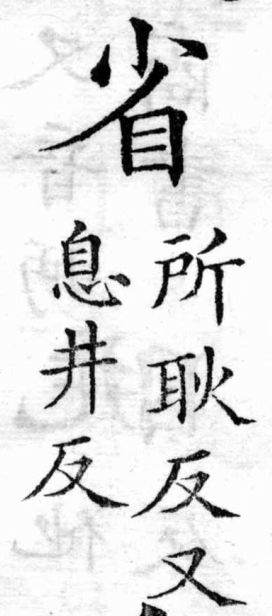 省
所耿反又
息井反